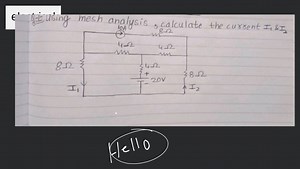 using mesh analysis, calculate the current I₁ & I₂
8Ω
4Ω 4Ω
8Ω 4Ω 8Ω
+
- 20V
I₁ I₂
Hello